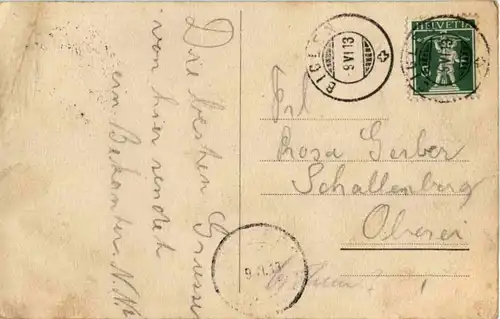 Die besten Grüsse
von hier sendet
ein Bekanter. N.
BIGLEN
9.VI.13
HELVETIA
Frl
Rosa Gerber
Schallenberg
Oberei